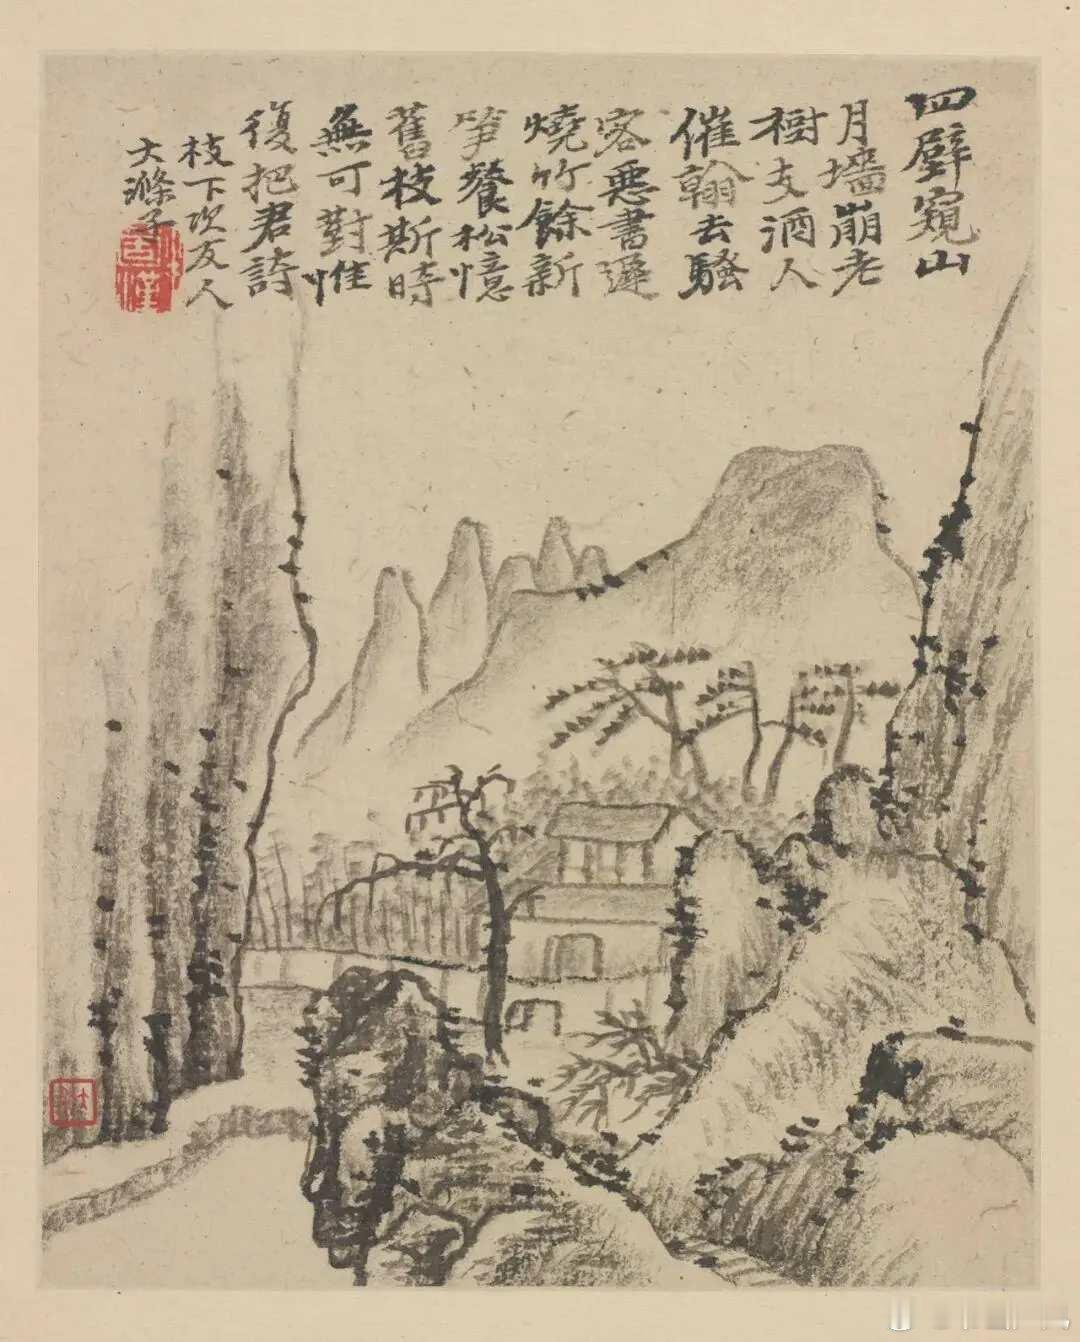 四壁窺山
月墻崩老
樹支酒人
催翰去騷
客惡書遲
燒竹餘新
笋餐松憶
舊枝斯時
無可對惟
復把君詩
枝下次友人
大滌子